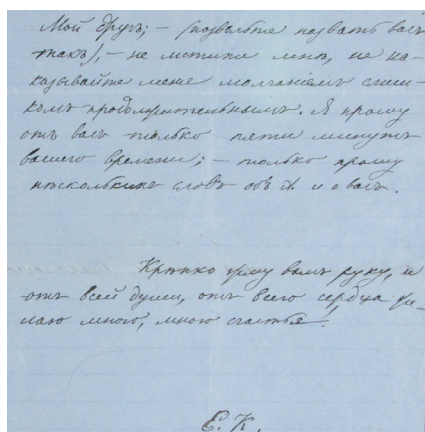 Мой другъ; — (позвольте назвать васъ
такъ), — не мстите мнѣ, не на-
казывайте меня молчаніемъ слиш-
комъ продолжительнымъ. Я прошу
отъ васъ только пяти минутъ
вашего времени; — только прошу
нѣсколькихъ словъ объ и о васъ.
Крѣпко жму вамъ руку, и
отъ всей души, отъ всего сердца же-
лаю много, много счастья!
Е. К.